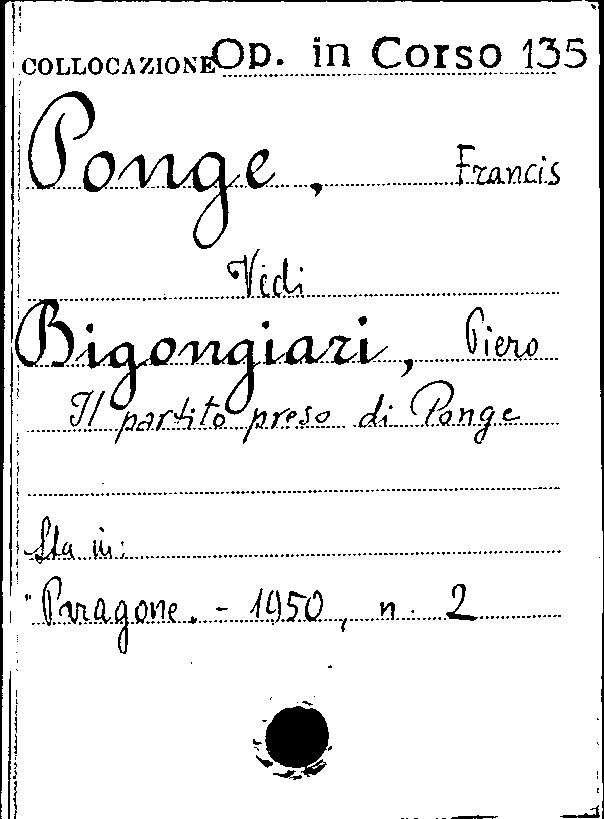 COLLOCAZIONE Op. in Corso 135
Ponge, Francis
Vedi
Bigongiari, Piero
Il partito preso di Ponge
Sta in:
"Paragone. - 1950, n. 2